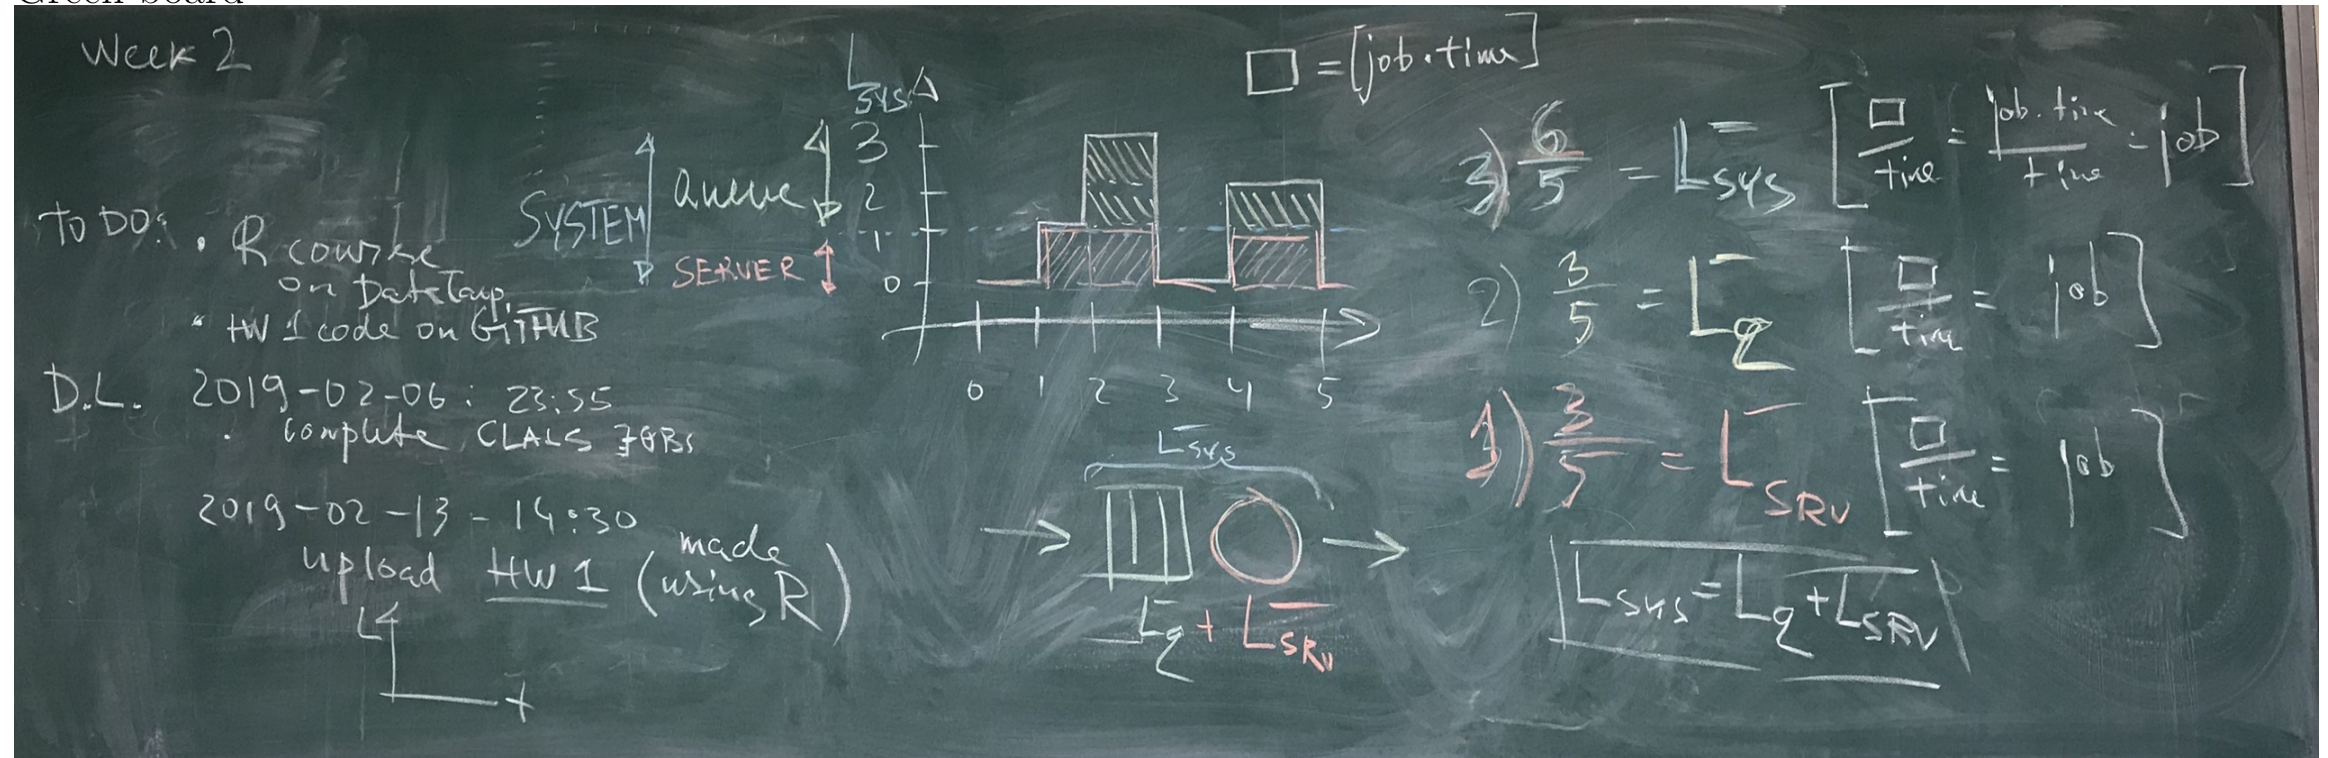 Green board
Week 2
TO DO:
• R course
on DataCamp.
• HW 1 code on GITHUB
D.L. 2019-02-06: 23:55
• complete CLALS JOBS
2019-02-13 - 14:30
upload HW 1 (made using R)
L
t
L sys
SYSTEM
Queue
SERVER
3
2
1
0
0 1 2 3 4 5
L sys
Lq + L SRV
□ = [job·time]
3) 6/5 = L sys [□/time = job·time/time = job]
2) 3/5 = Lq [□/time = job]
1) 3/5 = L SRV [□/time = job]
L sys = Lq + L SRV